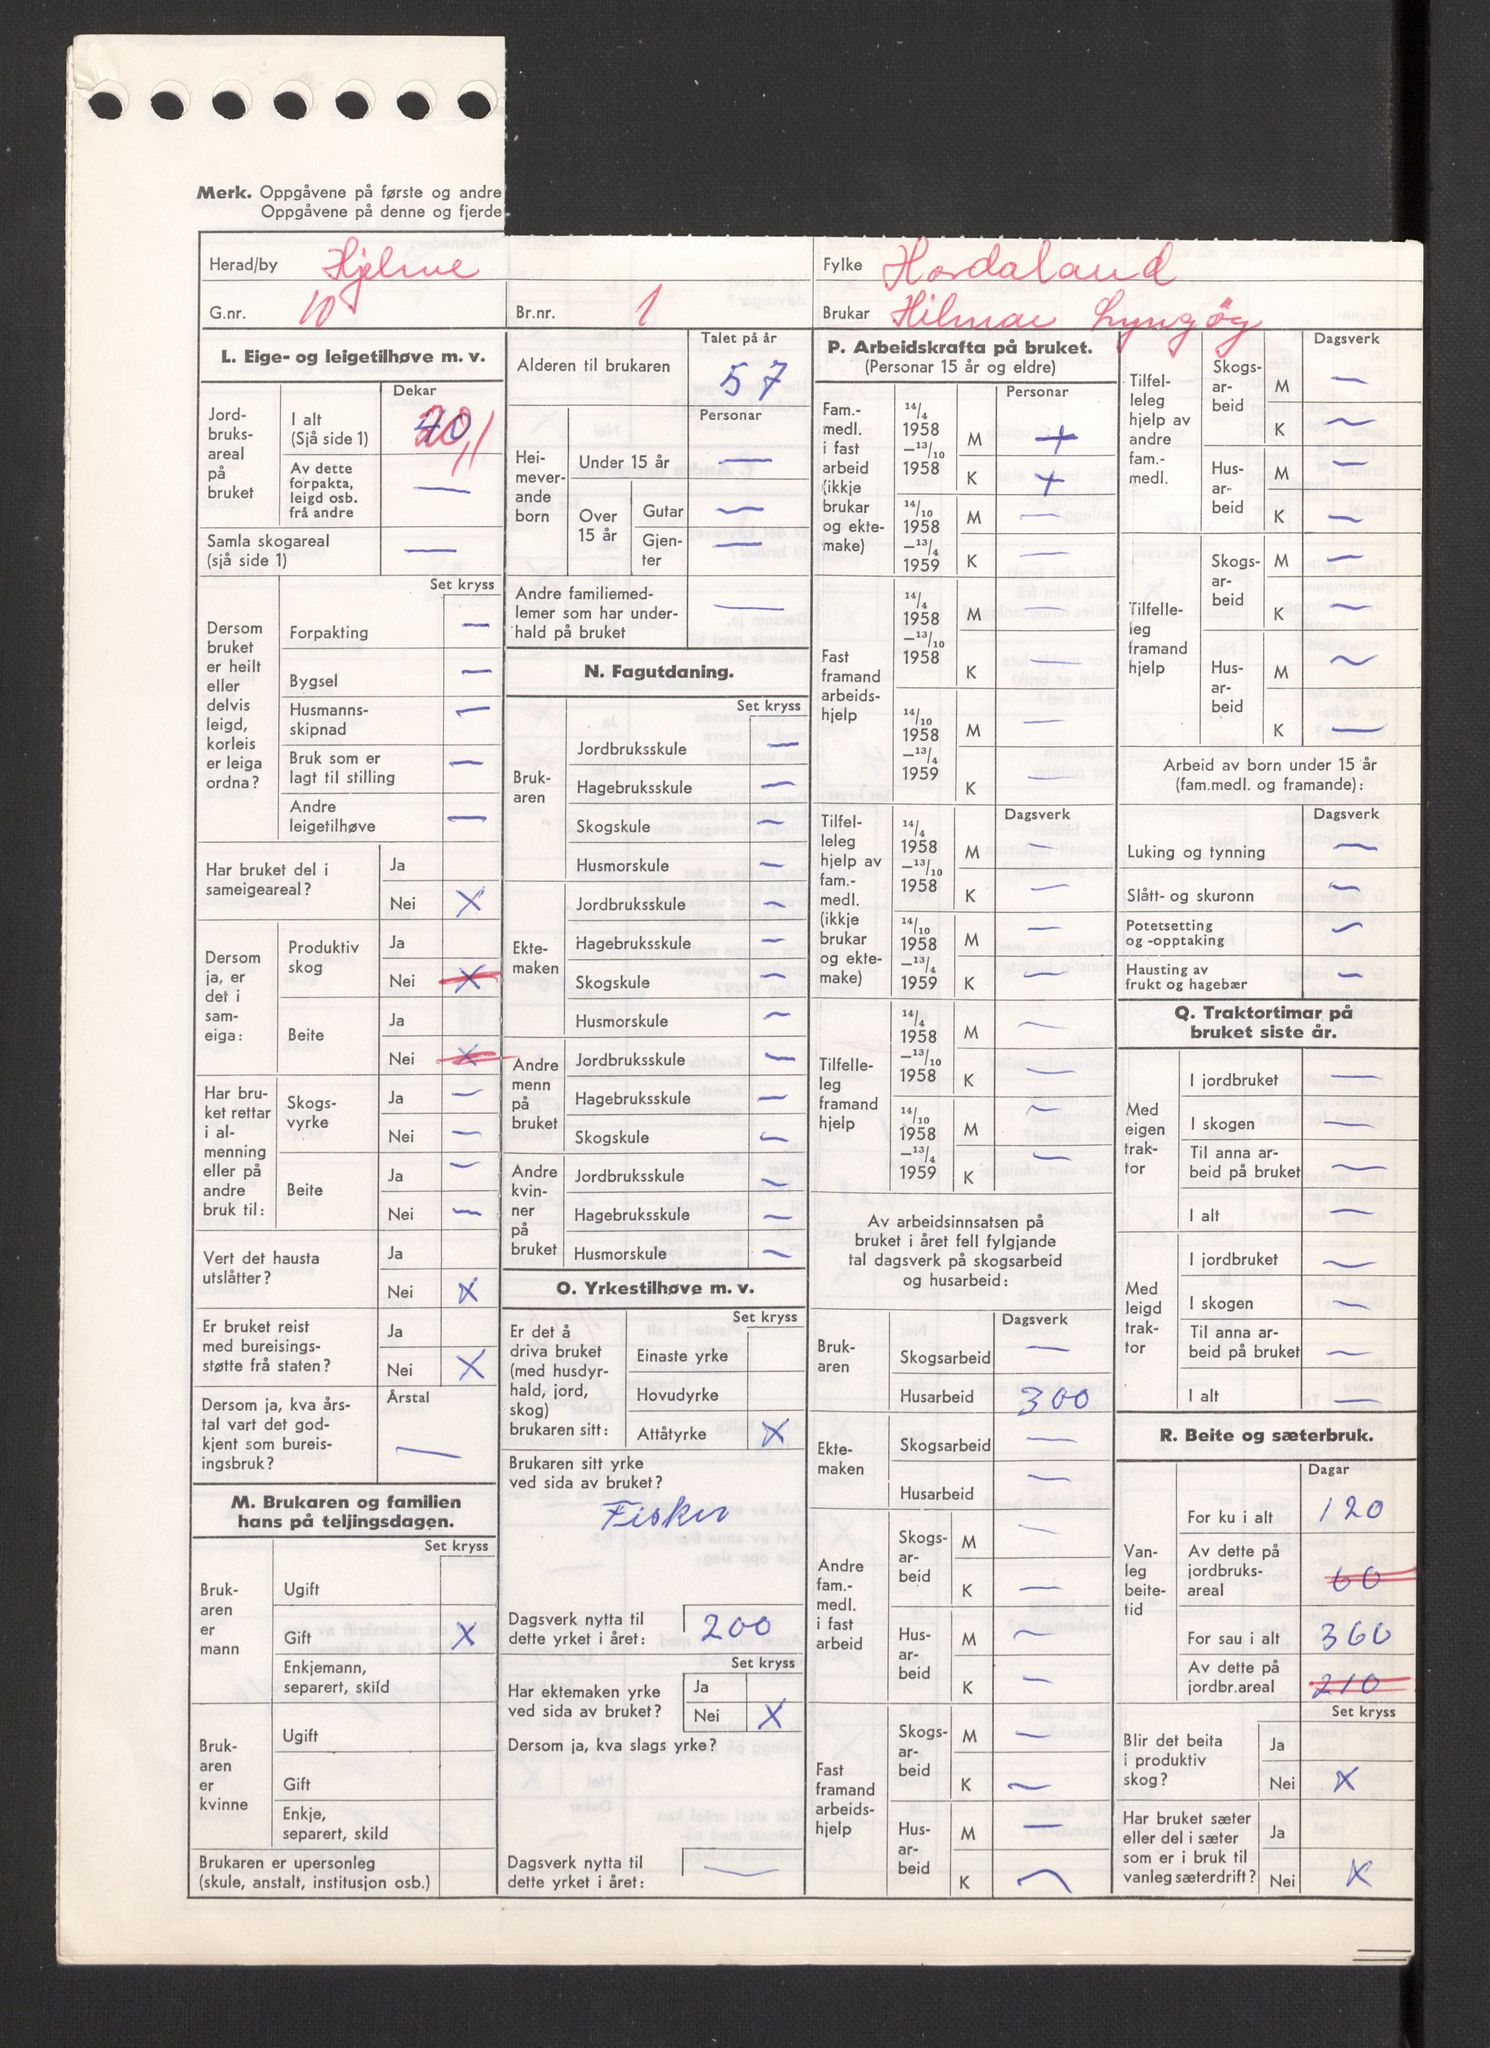 Merk. Oppgåvene på første og andre
Oppgåvene på denne og fjerde
Herad/by Hjelme
Fylke Hordaland
G.nr. 10
Br.nr. 1
Brukar Hilmar Lyngøy
L. Eige- og leigetilhøve m. v.
Dekar
Jord-
bruks-
areal
på
bruket
I alt
(Sjå side 1) 20,1
Av dette
forpakta,
leigd osb.
frå andre —
Samla skogareal
(sjå side 1) —
Set kryss
Dersom
bruket
er heilt
eller
delvis
leigd,
korleis
er leiga
ordna?
Forpakting —
Bygsel —
Husmanns-
skipnad —
Bruk som er
lagt til stilling —
Andre
leigetilhøve —
Har bruket del i
sameigeareal?
Ja
Nei X
Dersom
ja, er
det i
sam-
eiga:
Produktiv
skog
Ja
Nei X
Beite
Ja
Nei X
Har bru-
ket rettar
i al-
menning
eller på
andre
bruk til:
Skogs-
vyrke
Ja —
Nei —
Beite
Ja —
Nei —
Vert det hausta
utslåtter?
Ja
Nei X
Er bruket reist
med bureisings-
støtte frå staten?
Ja
Nei X
Dersom ja, kva års-
tal vart det god-
kjent som bureis-
ingsbruk?
Årstal
—
M. Brukaren og familien
hans på teljingsdagen.
Set kryss
Bruk-
aren
er
mann
Ugift
Gift X
Enkjemann,
separert, skild
Bruk-
aren
er
kvinne
Ugift
Gift
Enkje,
separert, skild
Brukaren er upersonleg
(skule, anstalt, institusjon osb.)
Talet på år
Alderen til brukaren 57
Personar
Hei-
mever-
ande
born
Under 15 år —
Over
15 år
Gutar —
Gjen-
ter —
Andre familiemed-
lemer som har under-
hald på bruket —
N. Fagutdaning.
Set kryss
Bruk-
aren
Jordbruksskule —
Hagebruksskule —
Skogskule —
Husmorskule —
Ekte-
maken
Jordbruksskule —
Hagebruksskule —
Skogskule —
Husmorskule —
Andre
menn
på
bruket
Jordbruksskule —
Hagebruksskule —
Skogskule —
Andre
kvin-
ner
på
bruket
Jordbruksskule —
Hagebruksskule —
Husmorskule —
O. Yrkestilhøve m. v.
Set kryss
Er det å
driva bruket
(med husdyr-
hald, jord,
skog)
brukaren sitt:
Einaste yrke
Hovudyrke
Attåtyrke X
Brukaren sitt yrke
ved sida av bruket?
Fisker
Dagsverk nytta til
dette yrket i året: 200
Set kryss
Har ektemaken yrke
ved sida av bruket?
Ja
Nei X
Dersom ja, kva slags yrke?
Dagsverk nytta til
dette yrket i året: —
P. Arbeidskrafta på bruket.
(Personar 15 år og eldre)
Personar
Fam.-
medl.
i fast
arbeid
(ikkje
brukar
og ekte-
make)
14/4
1958
—13/10
1958
M +
K +
14/10
1958
—13/4
1959
M —
K —
Fast
framand
arbeids-
hjelp
14/4
1958
—13/10
1958
M —
K —
14/10
1958
—13/4
1959
M —
K —
Dagsverk
Tilfel-
leleg
hjelp av
fam.-
medl.
(ikkje
brukar
og ekte-
make)
14/4
1958
—13/10
1958
M —
K —
14/10
1958
—13/4
1959
M —
K —
Tilfelle-
leg
framand
hjelp
14/4
1958
—13/10
1958
M —
K —
14/10
1958
—13/4
1959
M —
K —
Av arbeidsinnsatsen på
bruket i året fell fylgjande
tal dagsverk på skogsarbeid
og husarbeid:
Dagsverk
Bruk-
aren
Skogsarbeid —
Husarbeid 300
Ekte-
maken
Skogsarbeid —
Husarbeid —
Andre
fam.-
medl.
i fast
arbeid
Skogs-
ar-
beid
M —
K —
Hus-
ar-
beid
M —
K —
Fast
framand
arbeids-
hjelp
Skogs-
ar-
beid
M —
K —
Hus-
ar-
beid
M —
K —
Dagsverk
Tilfel-
leleg
hjelp av
andre
fam.-
medl.
Skogs-
ar-
beid
M —
K —
Hus-
ar-
beid
M —
K —
Tilfelle-
leg
framand
hjelp
Skogs-
ar-
beid
M —
K —
Hus-
ar-
beid
M —
K —
Arbeid av born under 15 år
(fam.medl. og framande):
Dagsverk
Luking og tynning —
Slått- og skuronn —
Potetsetting
og -opptaking —
Hausting av
frukt og hagebær —
Q. Traktortimar på
bruket siste år.
Med
eigen
trak-
tor
I jordbruket —
I skogen —
Til anna ar-
beid på bruket —
I alt —
Med
leigd
trak-
tor
I jordbruket —
I skogen —
Til anna ar-
beid på bruket —
I alt —
R. Beite og sæterbruk.
Dagar
Van-
leg
beite-
tid
For ku i alt 120
Av dette på
jordbruks-
areal 60
For sau i alt 360
Av dette på
jordbr.areal 210
Set kryss
Blir det beita
i produktiv
skog?
Ja
Nei X
Har bruket sæter
eller del i sæter
som er i bruk til
vanleg sæterdrift?
Ja
Nei X